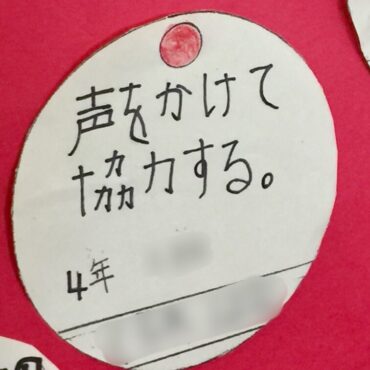 声をかけて
協力する。
4年